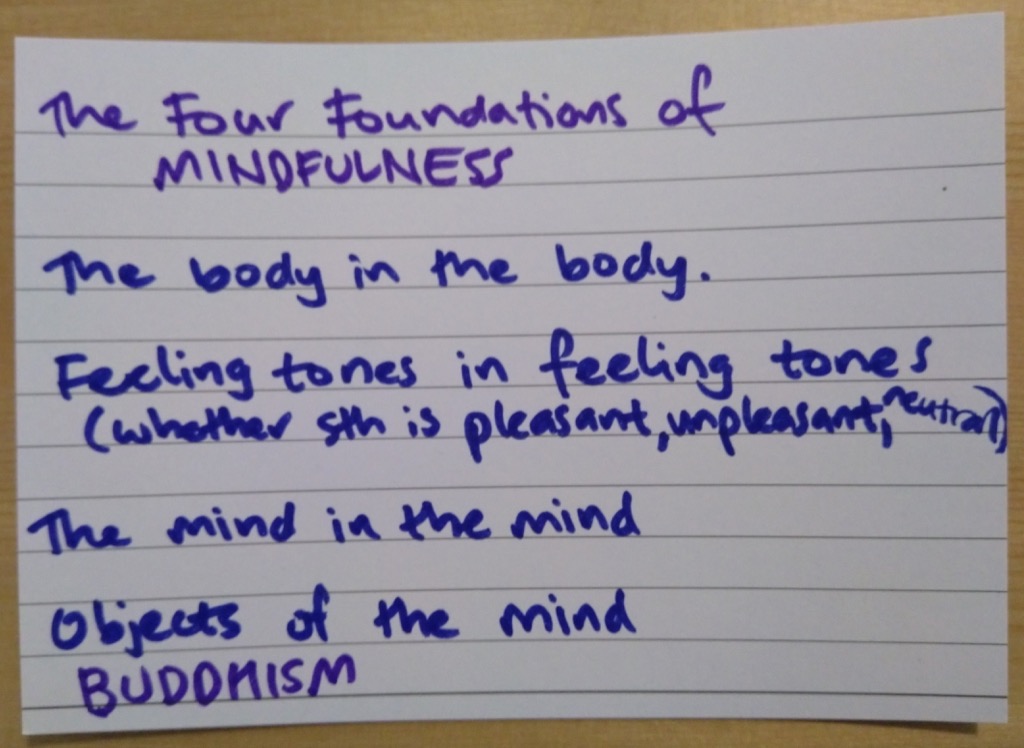 The Four Foundations of
MINDFULNESS
The body in the body.
Feeling tones in feeling tones
(whether sth is pleasant, unpleasant, neutral)
The mind in the mind
Objects of the mind
BUDDHISM